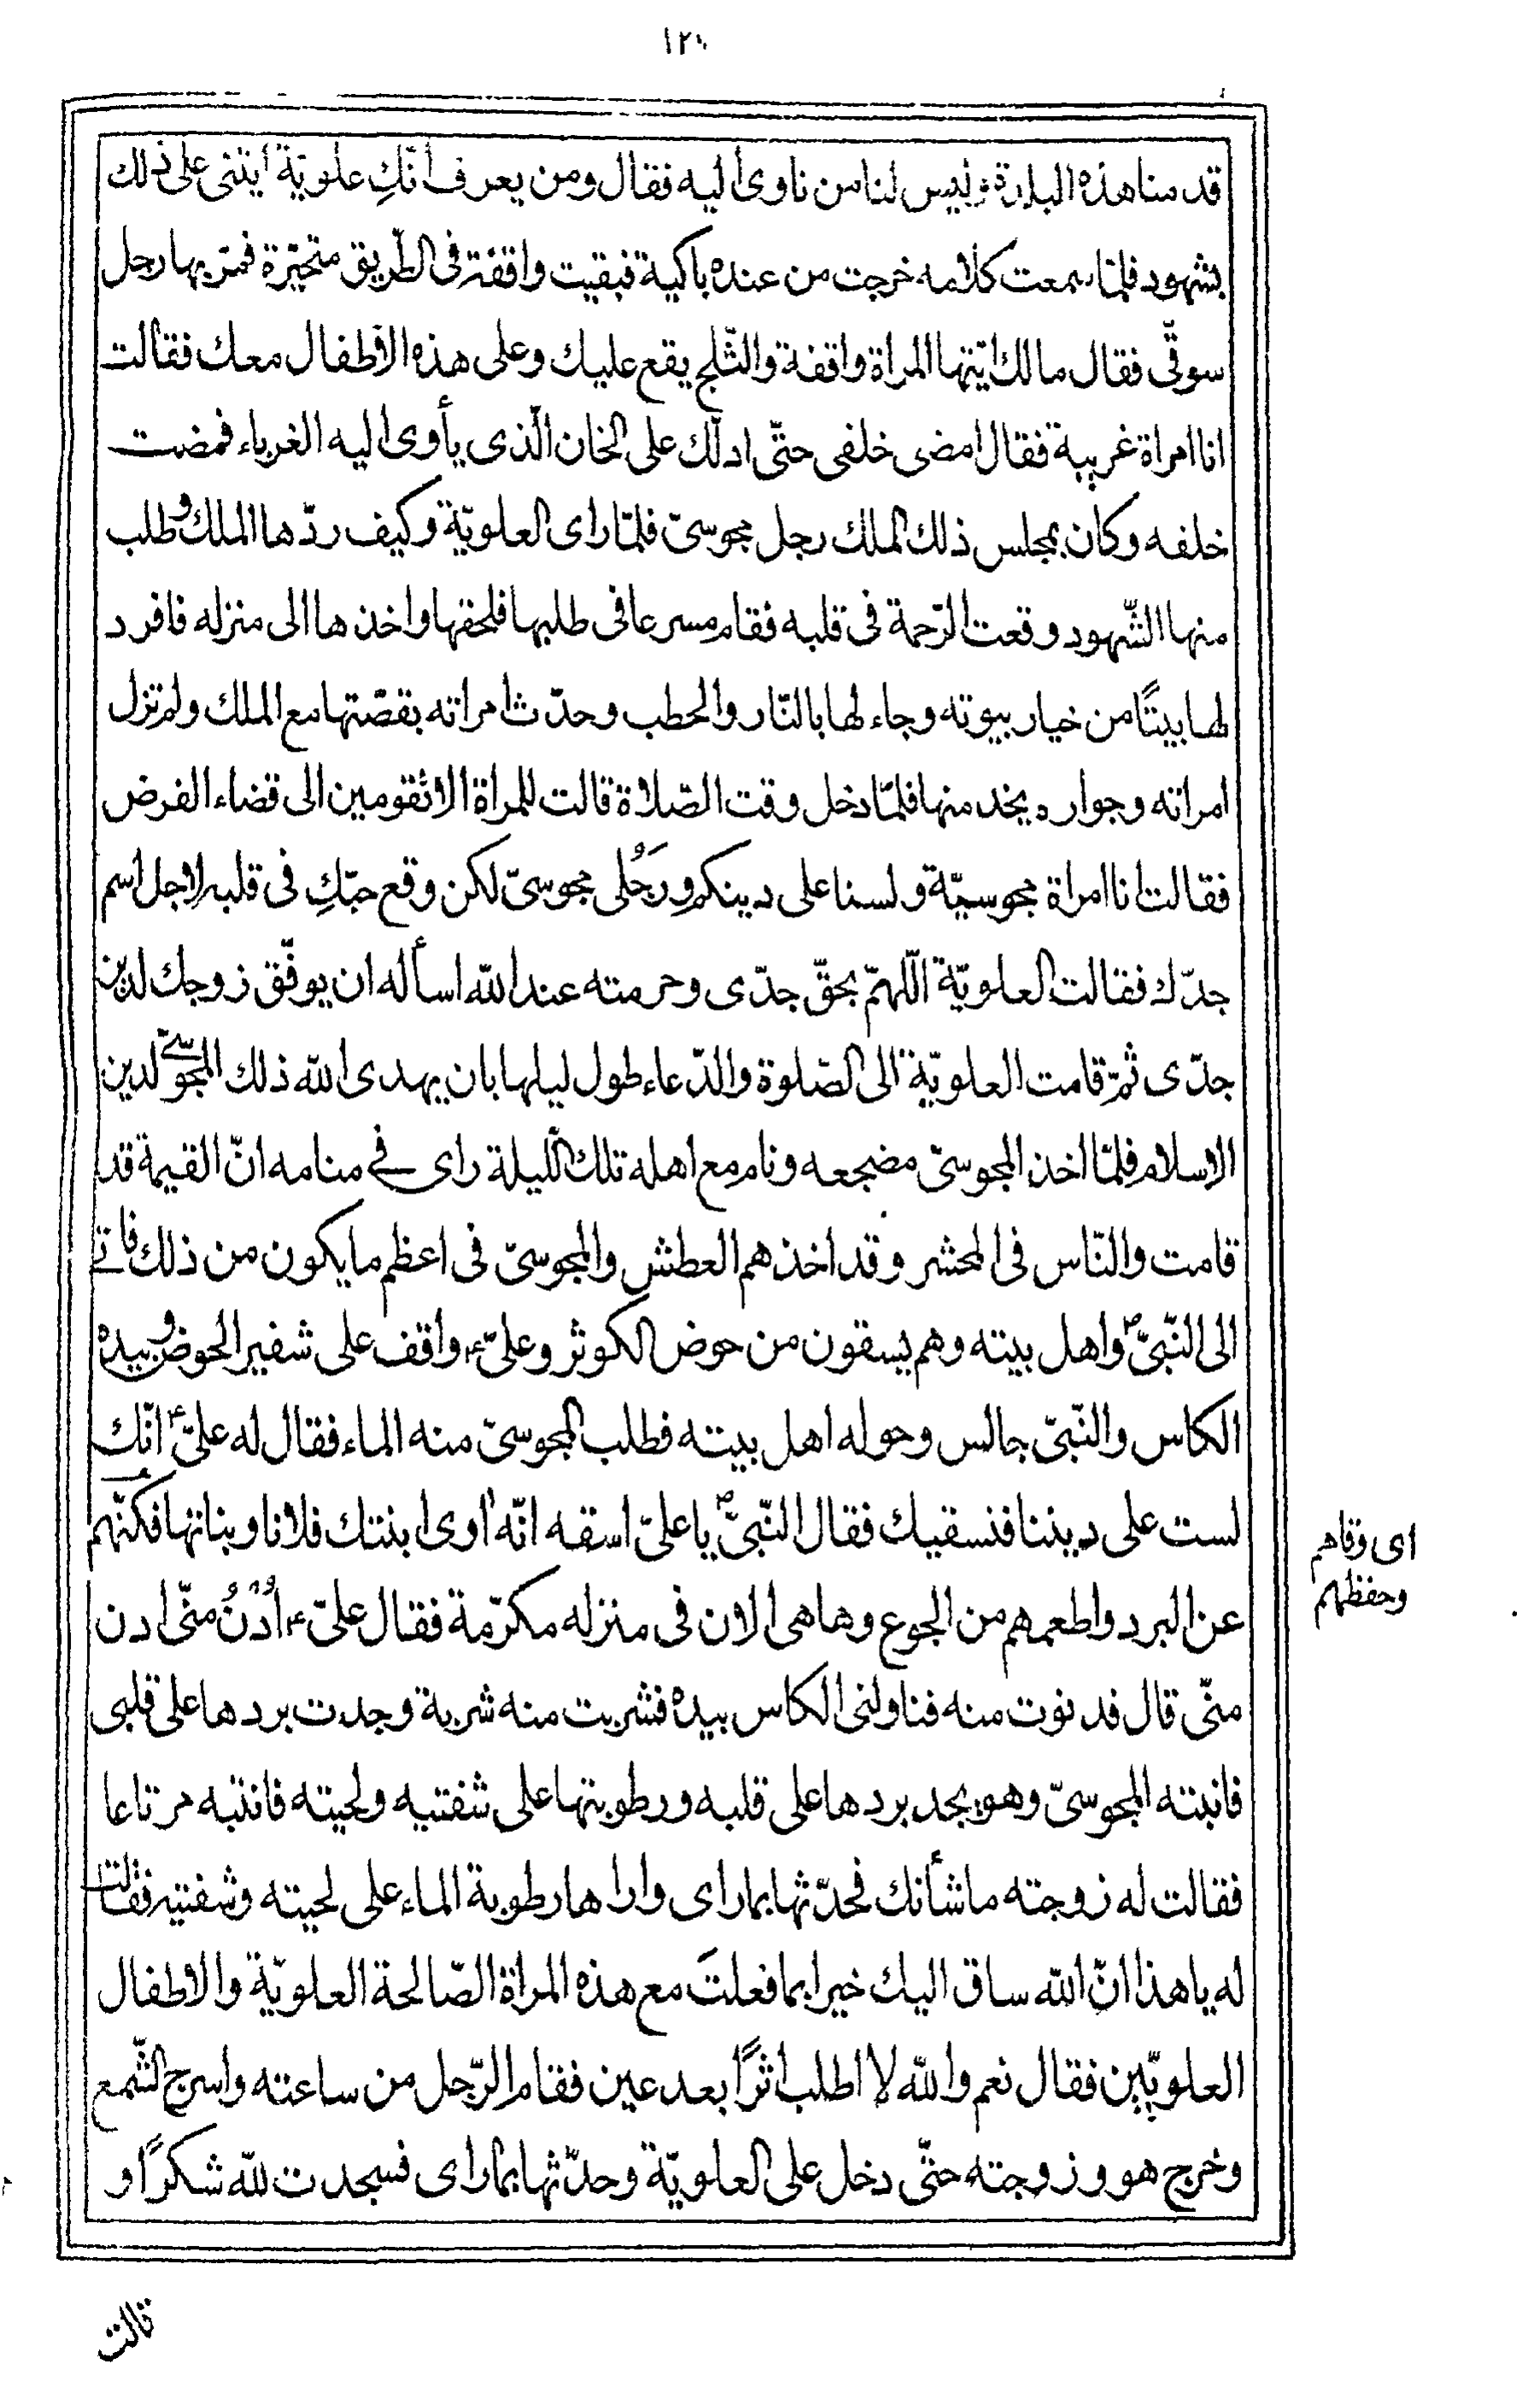 قد منا هذه البلدة وليس لنا من ناوى اليه فقال ومن يعرف انّكِ علويّة ايتنى على ذلك
بشهود فلمّا سمعت كلامه خرجت من عنده باكية فبقيت واقفة فى الطّريق متحيّرة فمرّ بها رجل
سوقّى فقال مالك ايّتها المراة واقفة والثّلج يقع عليك وعلى هذه الاطفال معك فقالت
انا امراة غريبة فقال امضى خلفى حتّى ادلّك على الخان الّذى يأوى اليه الغرباء فمضت
خلفه وكان بمجلس ذلك الملك رجل مجوسىّ فلمّا راى العلويّة وكيف ردّها الملك وطلب
منها الشّهود وقعت الرّحمة فى قلبه فقام مسرعا فى طلبها فلحقها واخذها الى منزله فافرد
لها بيتًا من خيار بيوته وجاء لها بالنّار والحطب وحدّث امراته بقصّتها مع الملك ولم تزل
امراته وجواره يخدمنها فلمّا دخل وقت الصّلاة قالت للمراة الا تقومين الى قضاء الفرض
فقالت انا امراة مجوسيّة ولسنا على دينكم ورَجُلى مجوسىّ لكن وقع حبّكِ فى قلبه لاجل اسم
جدّك فقالت العلويّة اللّهمّ بحقّ جدّى وحرمته عند اللّه اسأله ان يوفّق زوجك لدين
جدّى ثمّ قامت العلويّة الى الصّلوة والدّعاء طول ليلها بان يهدى اللّه ذلك المجوسىّ لدين
الاسلام فلمّا اخذ المجوسىّ مضجعه ونام مع اهله تلك اللّيلة راى فى منامه انّ القيمة قد
قامت والنّاس فى المحشر وقد اخذهم العطش والمجوسىّ فى اعظم ما يكون من ذلك فاتى
الى النّبىّ ص واهل بيته وهم يسقون من حوض الكوثر وعلىّ ع واقف على شفير الحوض وبيده
الكاس والنّبىّ جالس وحوله اهل بيته فطلب المجوسىّ منه الماء فقال له علىّ ع انّك
لست على ديننا فنسقيك فقال النّبىّ ص يا علىّ اسقه انّه اوى ابنتك فلانا وبناتها فكنّهم
عن البرد واطعمهم من الجوع وها هى الان فى منزله مكرّمة فقال علىّ ع ادْنُ منّى ادن
منّى قال فدنوت منه فناولنى الكاس بيده فشربت منه شربة وجدت بردها على قلبى
فانبته المجوسىّ وهو يجد بردها على قلبه ورطوبتها على شفتيه ولحيته فانتبه مرتاعا
فقالت له زوجته ما شأنك فحدّثها بما راى واراها رطوبة الماء على لحيته وشفتيه فقالت
له يا هذا انّ اللّه ساق اليك خيرا بما فعلتَ مع هذه المراة الصّالحة العلويّة والاطفال
العلويّين فقال نعم واللّه لا اطلب اثرًا بعد عين فقام الرّجل من ساعته واسرج الشّمع
وخرج هو وزوجته حتّى دخل على العلويّة وحدّثها بما راى فسجدت للّه شكرًا و
اى وقاهم
وحفظهم
قالت